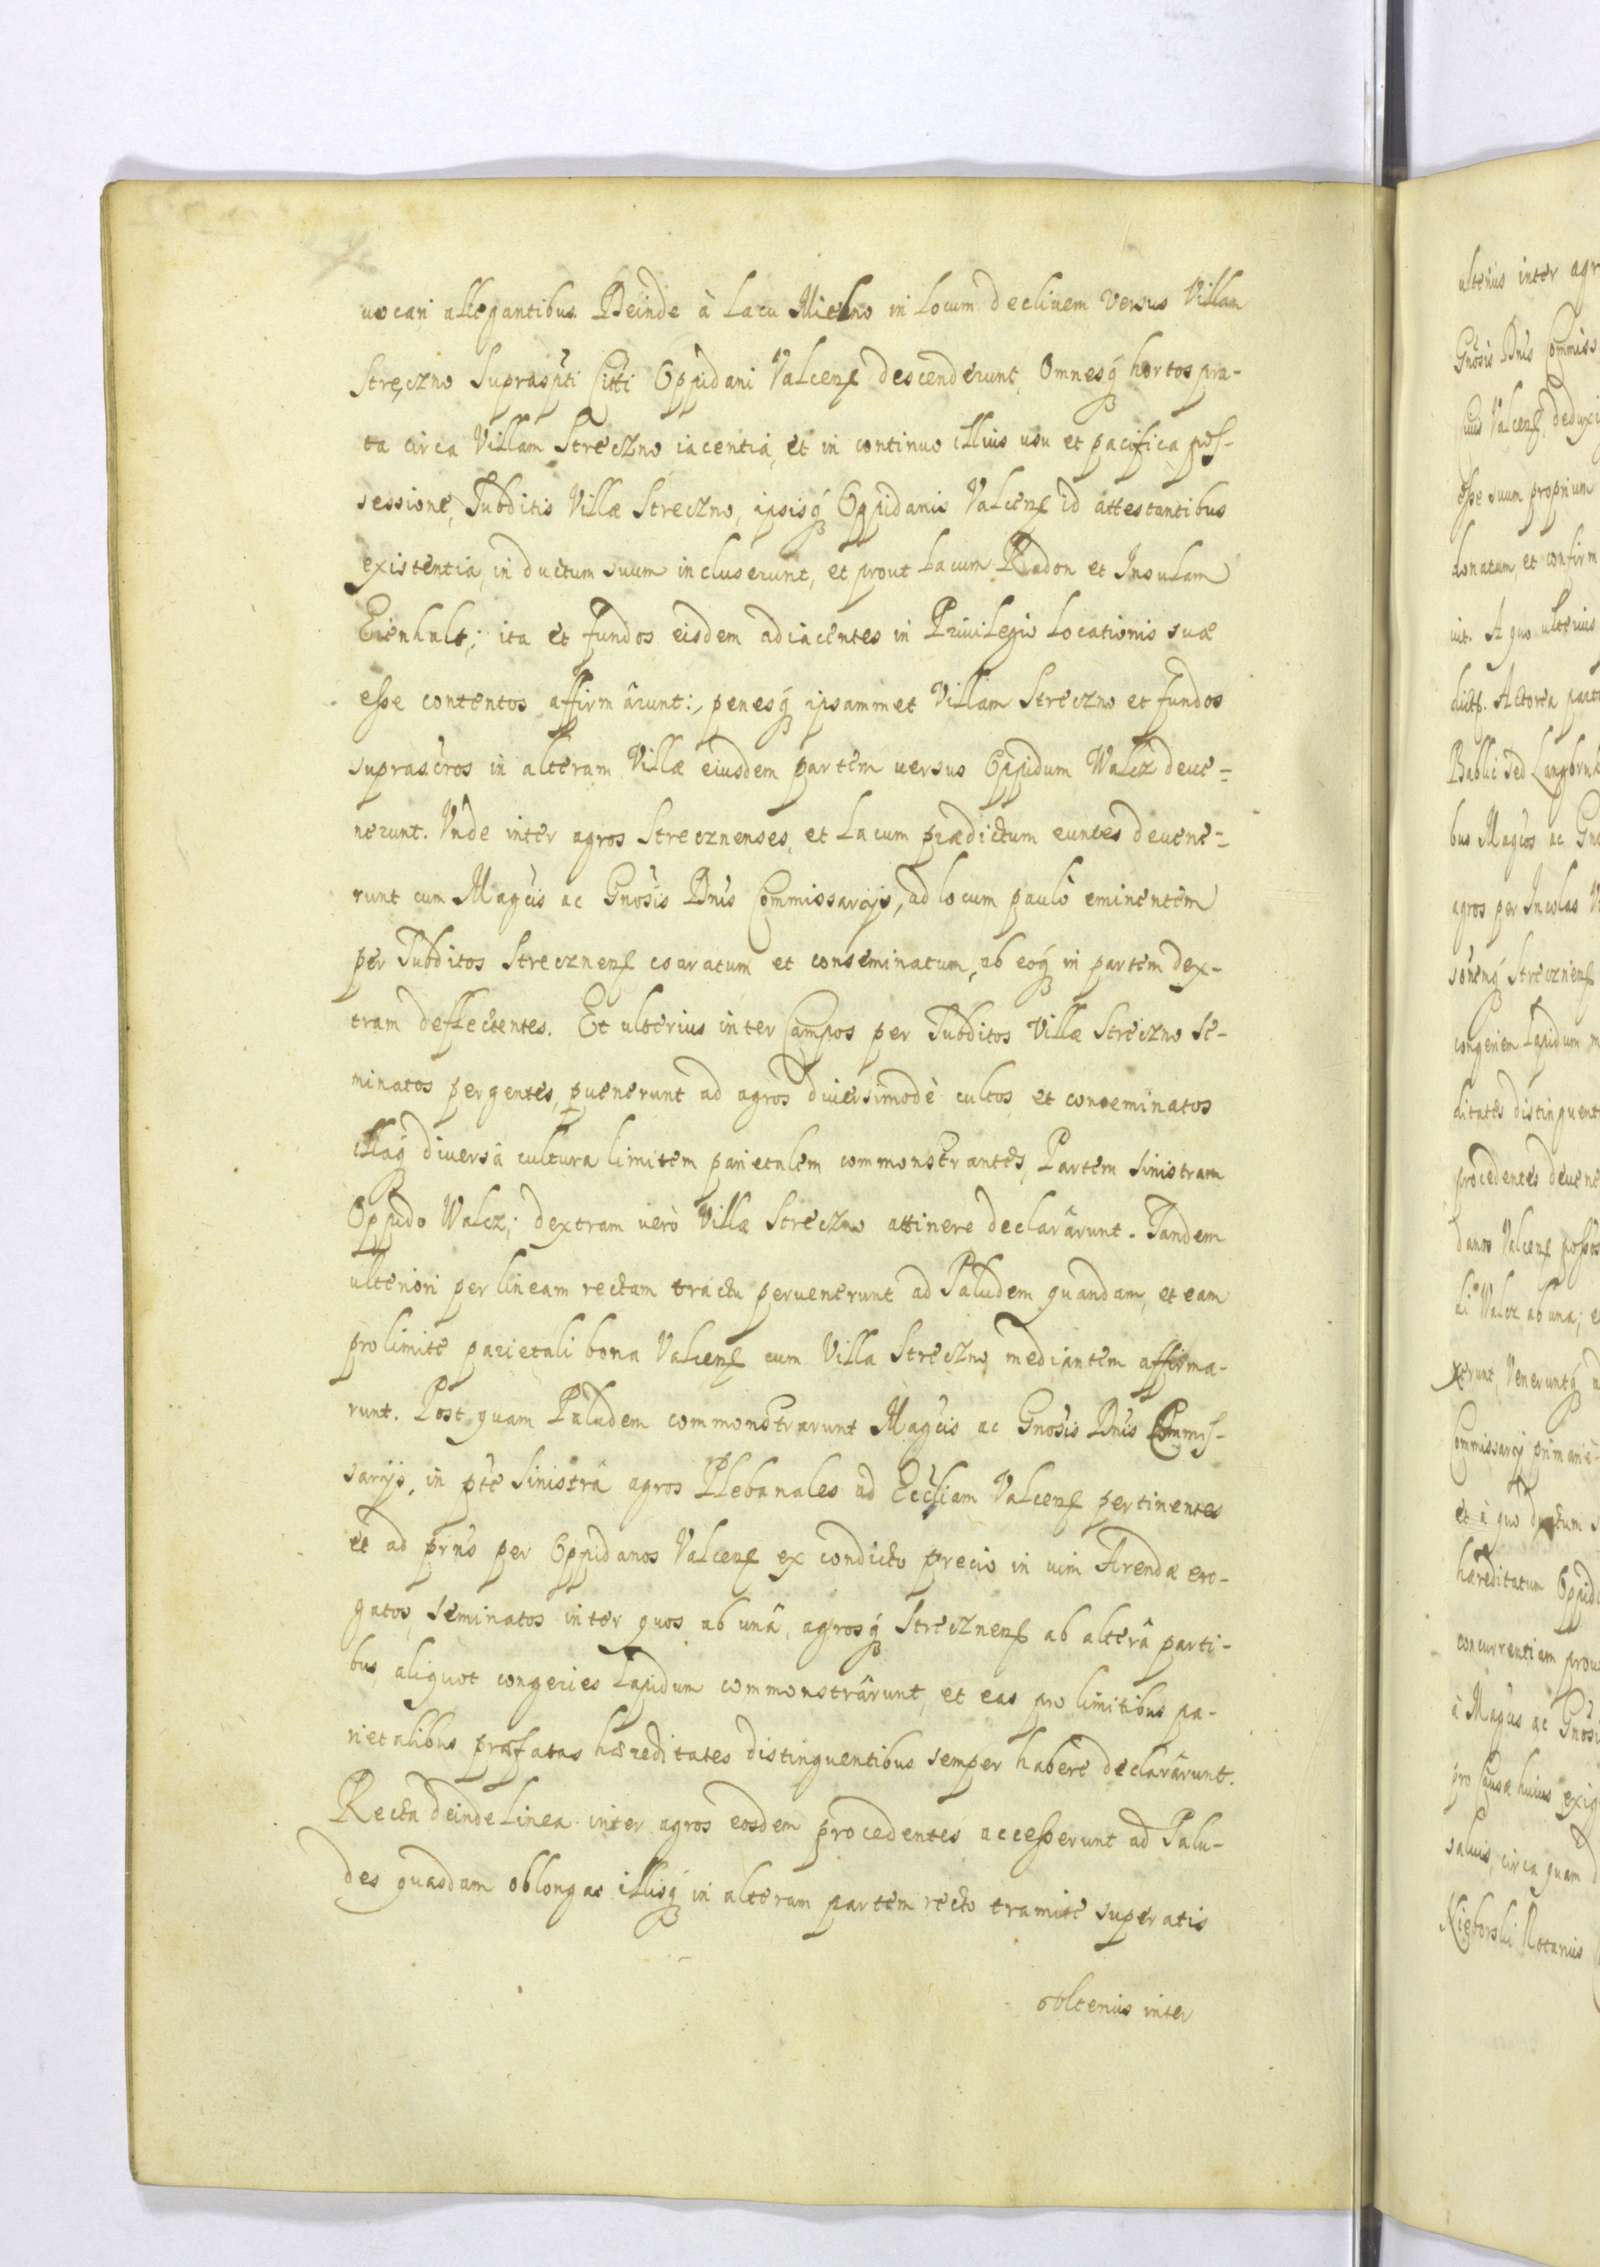 uocari allegantibus. Deinde à Lacu Mielno in locum decliuem versus Villam
Streczno Supraspti Citti Oppidani Valcens descenderunt, Omnesq hortos pra-
ta circa Villam Streczno iacentia, et in continuo illius usu et pacifica pos-
sessione, Subditis Villæ Streczno, ipsisq Oppidanis Valcens id attestantibus
existentia, in ductum suum incluserunt, et prout Lacum Radon et Insulam
ita et fundos eisdem adiacentes in Priuilegio Locationis suæ
esse contentos affirmârunt:, penesq ipsammet Villam Streczno et fundos
suprascros in alteram Villæ eiusdem partem uersus Oppidum Walcz deue-
nerunt. Vnde inter agros Strecznenses, et Lacum prædictum euntes deuene-
runt cum Magcis ac Gnosis Dnis Commissarijs, ad locum paulò eminentem
per Subditos Strecznens coaratum et conseminatum, ab eoq in partem dex-
tram deflectentes. Et ulterius inter Campos per Subditos Villæ Streczno se-
minatos pergentes, puenerunt ad agros diuersimodè cultos et conseminatos
illaq diversâ cultura limitem parietalem commonstrantes, Partem sinistram
Oppido Walcz; dextram uerò Villæ Streczno attinere declarârunt. Tandem
ulteriori per lineam rectam tractu peruenerunt ad Paludem quandam, et eam
pro limite parietali bona Valcens cum Villa Streczno mediantem affirma-
runt. Post quam Paludem commonstrarunt Magcis ac Gnosis Dnis Commis-
sarijs, in pte sinistrâ agros Plebanales ad Eccliam Valcens pertinentes
et ad prns per Oppidanos Valcens ex condicto precio in uim Arendæ ero-
gatos, seminatos inter quos ab unâ, agrosq Strecznens ab alterâ parti-
bus, aliquot congeries Lapidum commonstrârunt, et eas pro limitibus pa-
rietalibus præfatas hæreditates distinguentibus semper habere declarârunt.
Recta deinde Linea inter agros eosdem procedentes accesserunt ad Palu-
des quasdam oblongas illisq in alteram partem recto tramite superatis
inter
ulterius inter agr
Gnosis Dnis Commiss
Valcens deduxi
esse suum proprium
donatum et confirm
uit. A quo ulterius
Actorea parte
sed
bus Magcos ac Gno
agros per Incolas V
Strecznens
congeriem Lapidum m
ditates distinguent
procedentes deuene
danos Valcens posses
di Walcz ab una; e
xerunt, Veneruntq a
Commissarij primarie
et à quo ductum s
hæreditatum Oppido
concurrentiam prou
à Magcis ac Gnosi
pro causæ huius exig
saluis, circa quam d
Notarius